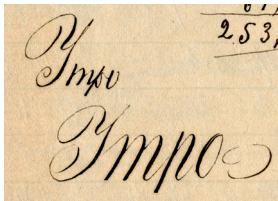 253,
Утро
Утро